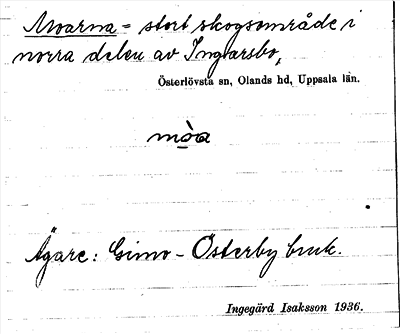 Moarna = stort skogsområde i
norra delen av Ingvarsbo,
Österlövsta sn, Olands hd, Uppsala län.
mòa
Ägare: Gimo-Österby bruk.
Ingegärd Isaksson 1936.